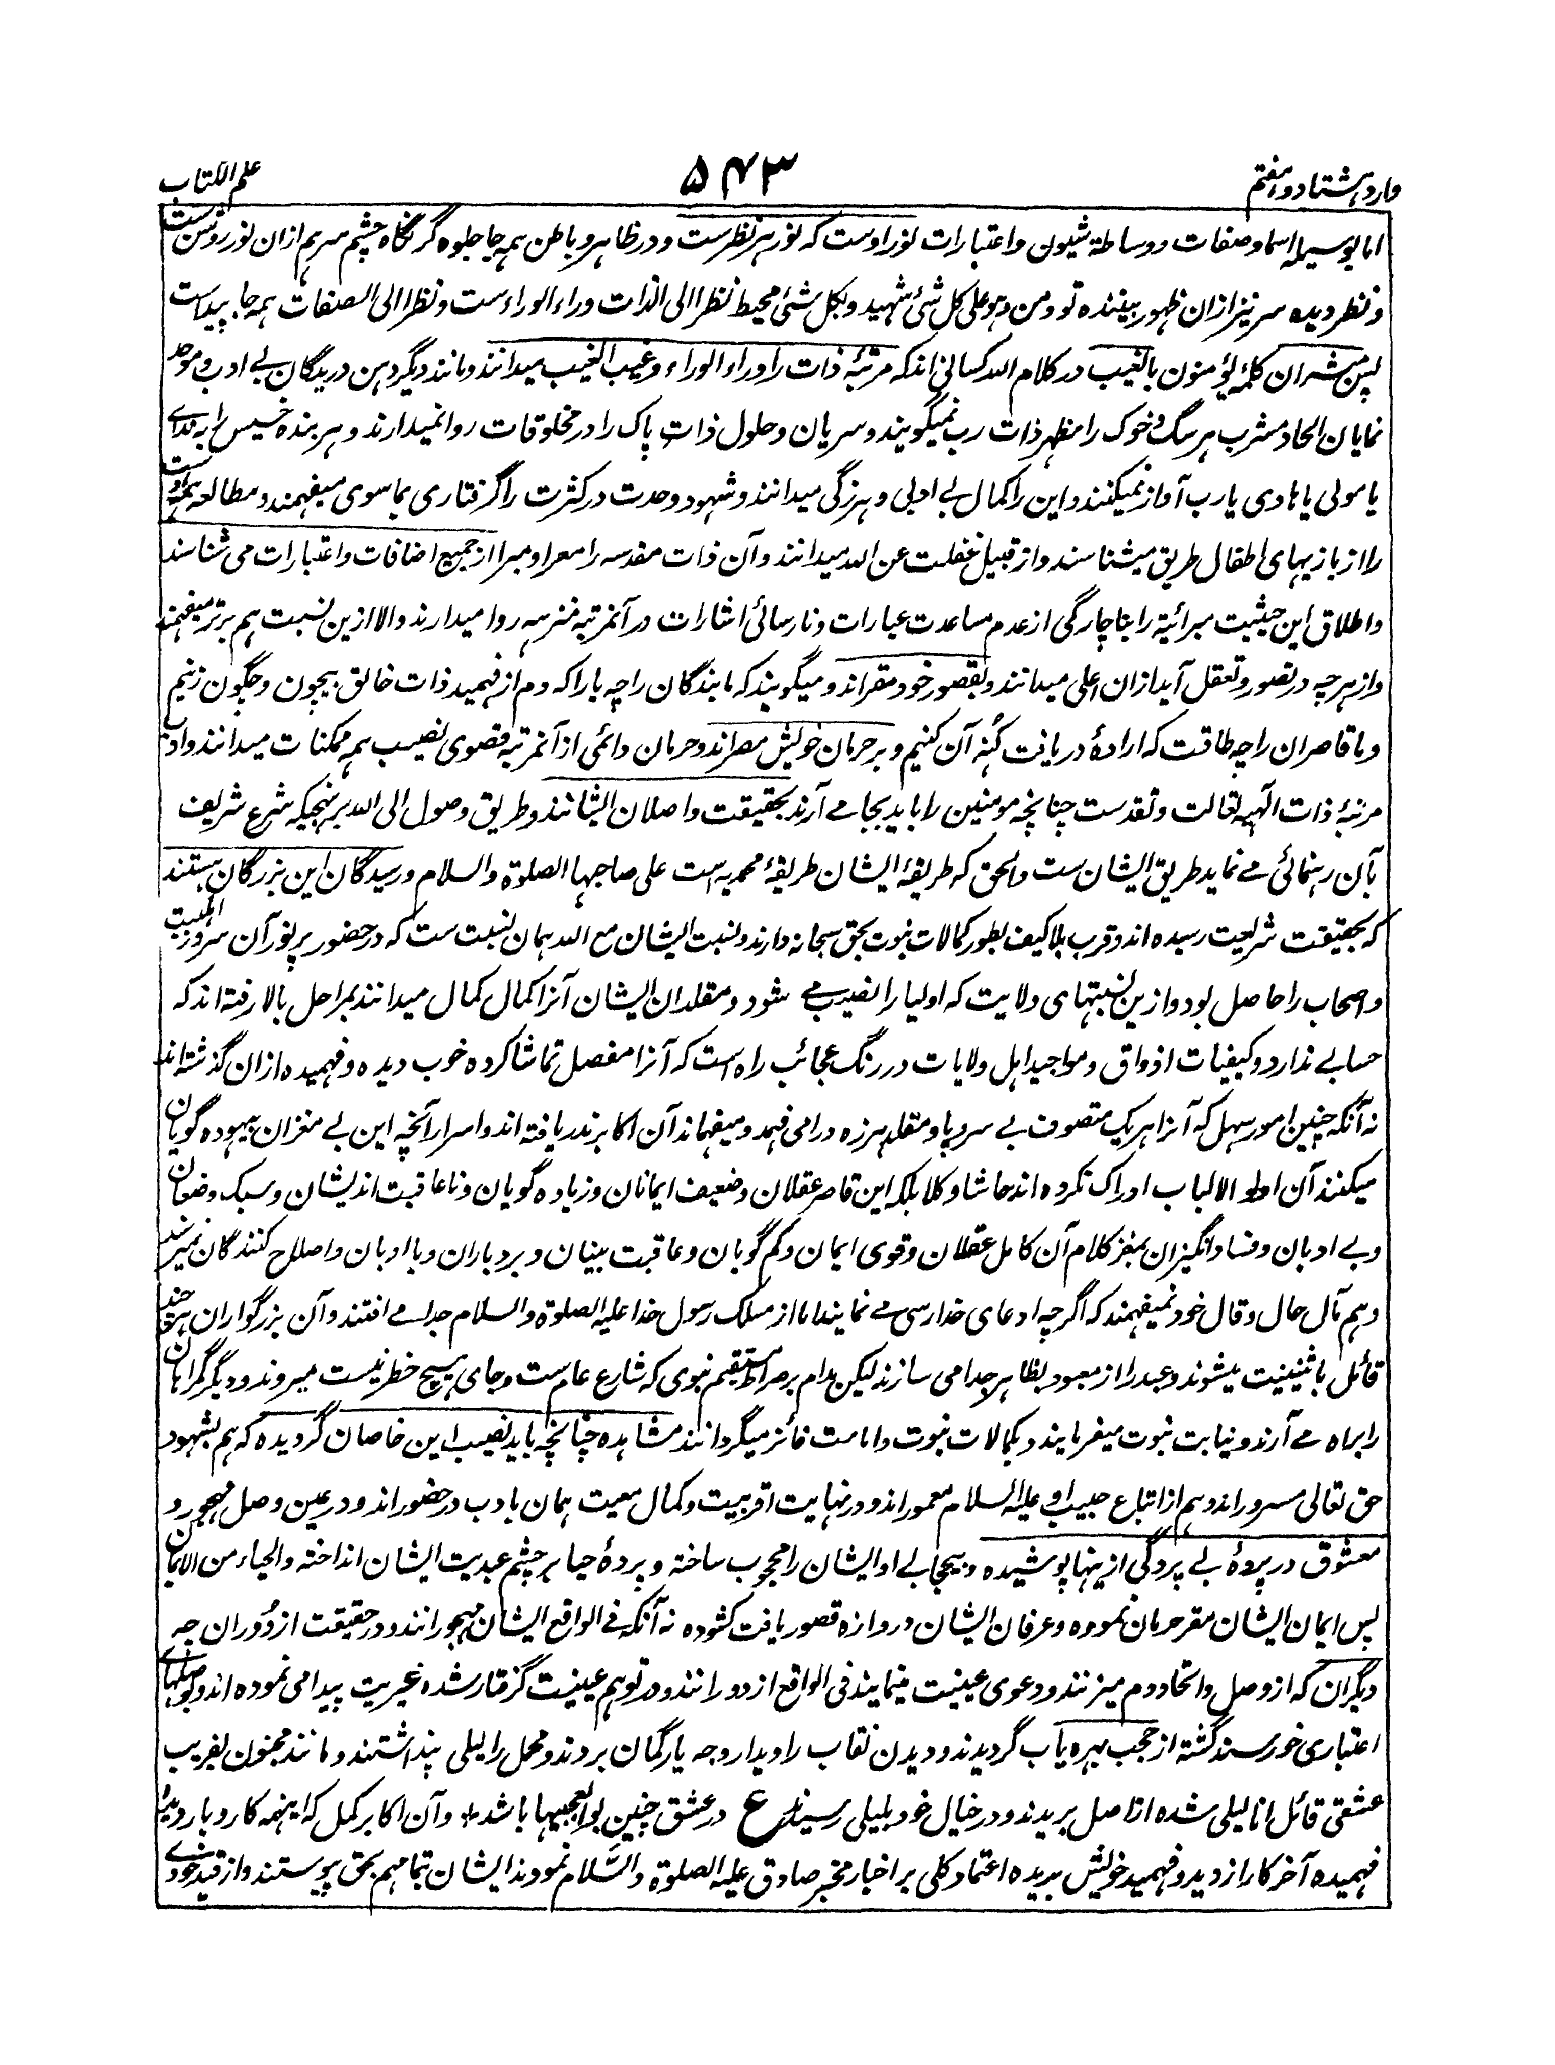 وارد ہشتاد و ہفتم ۵۴۳ علم الکتاب
اما بوسیلہ اسما و صفات و وساطۃ شیون و اعتبارات نور اوست کہ نور ہر نظرست و در ظاہر و باطن ہمہ جا جلوہ گر نگاہ چشم سر ہم ازان نور روشن ست
و نظر دیدہ سر نیز ازان ظہور بینندہ تو و من وہو علی کل شئ شہید و بکل شئ محیط نظرا الی الذات وراء الوراءست و نظرا الی الصفات ہمہ جا پیداست
پس مبشران کلمۂ یؤمنون بالغیب در کلام اللہ کسانی اند کہ مرتبۂ ذات را وراء الوراء و غیب الغیب میدانند و مانند دیگر دہن دریدگان بے ادب و موحد
نمایان الحاد مشرب ہر سگ و خوک را مظہر ذات رب نمیگویند و سریان و حلول ذات پاک را در مخلوقات روا نمیدارند و ہر بندہ خسیس را بہ ندای
یا مولی یا ہادی یا رب آواز نمیکنند و این را کمال بے ادبی و ہرزگی میدانند و شہود وحدت در کثرت را گرفتاری بماسوی میفہمند و مطالعہ ہمہ اوست
را از بازیہای اطفال طریق میشناسند و از قبیل غفلت عن اللہ میدانند و آن ذات مقدسہ را معرا و مبرا از جمیع اضافات و اعتبارات می شناسند
و اطلاق این حیثیت مبرائیۃ را بناچارگی از عدم مساعدت عبارات و نارسائی اشارات در آنمرتبہ منزہہ روا میدارند و الا ازین نسبت ہم برتر میفہمند
و از ہرچہ در تصور و تعقل آید ازان اعلی میدانند و بقصور خود مقراند و میگویند کہ ما بندگان را چہ یارا کہ دم از فہمید ذات خالق بیچون و چگون زنیم
و ما قاصران را چہ طاقت کہ ارادۂ دریافت کُنہ آن کنیم و بر حرمان خویش مصراند و حرمان دائمی از آنمرتبہ قصوی نصیب ہمہ ممکنات میدانند و ادب
مرتبۂ ذات الٓہیہ تعالت و تقدست چنانچہ مومنین را باید بجا مے آرند بحقیقت واصلان ایشانند و طریق وصول الی اللہ بر نہجیکہ شرع شریف
بآن رہنمائی مے نماید طریق ایشان ست و الحق کہ طریقۂ ایشان طریقۂ محمدیہ است علی صاحبہا الصلوۃ والسلام و رسیدگان این بزرگان ہستند
کہ بحقیقت شریعت رسیدہ اند و قرب بلا کیف بطور کمالات نبوت بحق سبحانہ دارند و نسبت ایشان مع اللہ ہمان نسبت ست کہ در حضور پر نور آن سرور اہلبیت
و اصحاب را حاصل بود و ازین نسبتہای ولایت کہ اولیا را نصیب مے شود و مقلدان ایشان آنرا کمال کمال میدانند بمراحل بالا رفتہ اند کہ
حسابے ندارد و کیفیات اذواق و مواجید اہل ولایات در رنگ عجائب راہ است کہ آنرا مفصل تماشا کردہ خوب دیدہ و فہمیدہ ازان گذشتہ اند
نہ آنکہ چنین امور سہل کہ آنرا ہر یک متصوف بے سر و پا و مقلد ہرزہ درا می فہمد و میفہماند آن اکابر ندریافتہ اند و اسرار آنچہ این بے مغزان بیہودہ گویان
میکنند آن اولو الالباب ادراک نکردہ اند حاشا و کلا بلکہ این قاصر عقلان و ضعیف ایمانان و زیادہ گویان و ناعاقبت اندیشان و سبک وضعان
و بے ادبان و فساد انگیزان بمغز کلام آن کامل عقلان و قوی ایمان و کم گویان و عاقبت بینان و بردباران و با ادبان و اصلاح کنندگان نمیرسند
و ہم مآل حال و قال خود نمیفہمند کہ اگرچہ ادعای خدارسی مے نمایند اما از مسلک رسول خدا علیہ الصلوۃ والسلام جدا مے افتند و آن بزرگواران ہرچند
قائل باثنینیت میشوند و عبد را از معبود بظاہر جدا می سازند لیکن مدام بر صراط مستقیم نبوی کہ شارع عام ست و جای ہیچ خطر نیست میروند و دیگر گمراہان
را براہ مے آرند و نیابت نبوت میفرمایند و بکمالات نبوت و امامت فائز میگردانند مشاہدہ چنانچہ باید نصیب این خاصان گردیدہ کہ ہم بشہود
حق تعالی مسرور اند و ہم از اتباع حبیب او علیہ السلام معمور اند و در نہایت اقربیت و کمال معیت ہمان با دب در حضور اند و در عین وصل مہجور و
معشوق در پردۂ بے پردگی ازینہا پوشیدہ و بیحجابے او ایشان را محجوب ساختہ و پردۂ حیا بر چشم عبدیت ایشان انداختہ والحیاء من الایمان
پس ایمان ایشان مقر حرمان نمودہ و عرفان ایشان دروازہ قصور یافت کشودہ نہ آنکہ فی الواقع ایشان مہجورانند و در حقیقت از دُوران چہ
دیگران کہ از وصل و اتحاد دم میزنند و دعوی عینیت مینمایند فی الواقع از دورانند و در توہم عینیت گرفتار شدہ غیریت پیدا می نمودہ اند و بوصلہای
اعتباری خورسند گشتہ از حجب بہرہ یاب گردیدند و دیدن نقاب را دیدار وجہ یار گمان بردند و محمل را لیلی پنداشتند و مانند مجنون بفریب
عشقی قائل انا لیلی شدہ از اصل بریدند و در خیال خود بلیلی رسیدند ع در عشق چنین بوالعجبیہا باشد ؞ و آن اکابر کمل کہ اینہمہ کار و بار دیدہ
فہمیدہ آخر کار از دید و فہمید خویش بریدہ اعتماد کلی بر اخبار مخبر صادق علیہ الصلوۃ والسّلام نمودند ایشان بتمامہم بحق پیوستند و از قید خودی